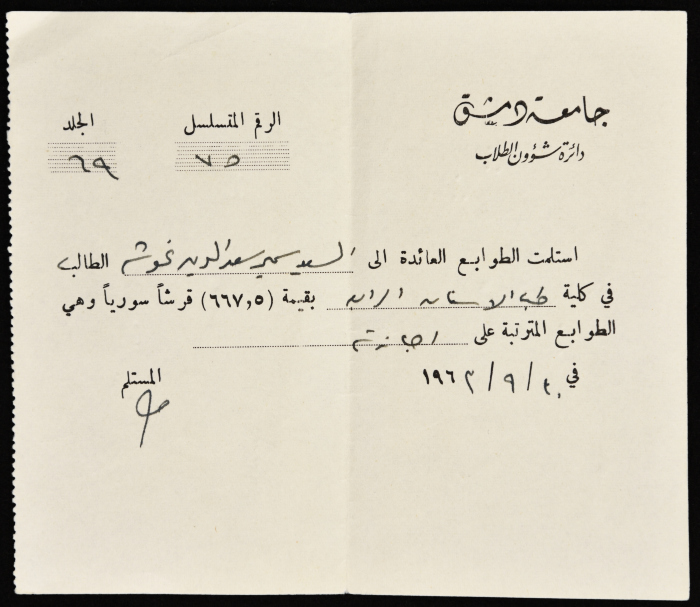 جامعة دمشق
دائرة شؤون الطلاب
الرقم المتسلسل
٧٥
الجلد
٦٩
استلمت الطوابع العائدة الى السيد سمير سعد الدين غوشه الطالب
في كلية طب الاسنان الرابعة بقيمة (٦٦٧,٥) قرشاً سورياً وهي
الطوابع المترتبة على اجازته
في ٩/ /١٩٦
المستلم